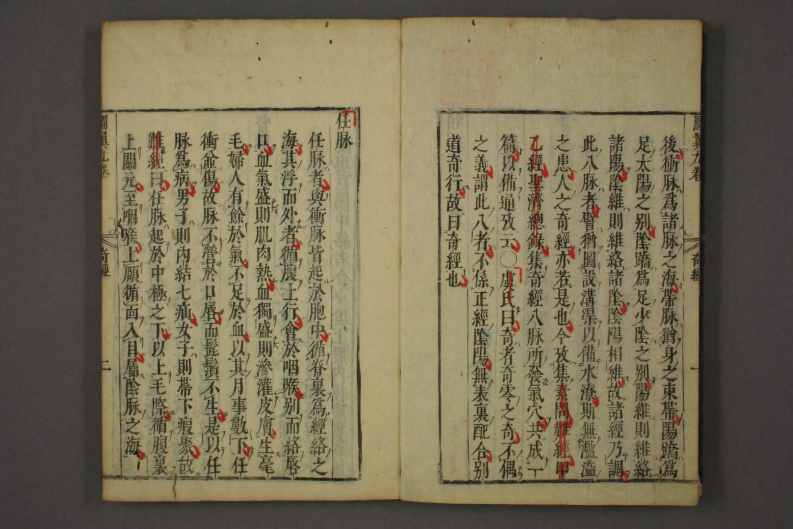 後衝脉爲諸脉之海帶脉猶身之束帶陽蹻爲
足太陽之別陰蹻爲足少陰之別陽維則維絡
諸陽陰維則維絡諸陰陰陽相維故諸經乃調
此八脉者譬猶圖設溝渠以備水潦斯無濫溢
之患人之奇經亦若是也今攷集素問難經甲
乙經聖濟總錄集奇經八脉所發氣穴共成一
篇以備通攷云○虞氏曰奇者奇零之奇不偶
之義謂此八者不係正經陰陽無表裏配合別
道奇行故曰奇經也
圖翼九卷
奇經
一
任脉
任脉者與衝脉皆起於胞中循脊裏爲經絡之
海其浮而外者循腹上行會於咽喉別而絡唇
口血氣盛則肌肉熱血獨盛則滲灌皮膚生毫
毛婦人有餘於氣不足於血以其月事數下任
衝并傷故脉不營於口唇而髭鬚不生是以任
脉爲病男子則內結七疝女子則帶下瘕聚故
難經曰任脉起於中極之下以上毛際循腹裏
上關元至咽喉上頤循面入目屬陰脉之海
圖翼九卷
奇經
二